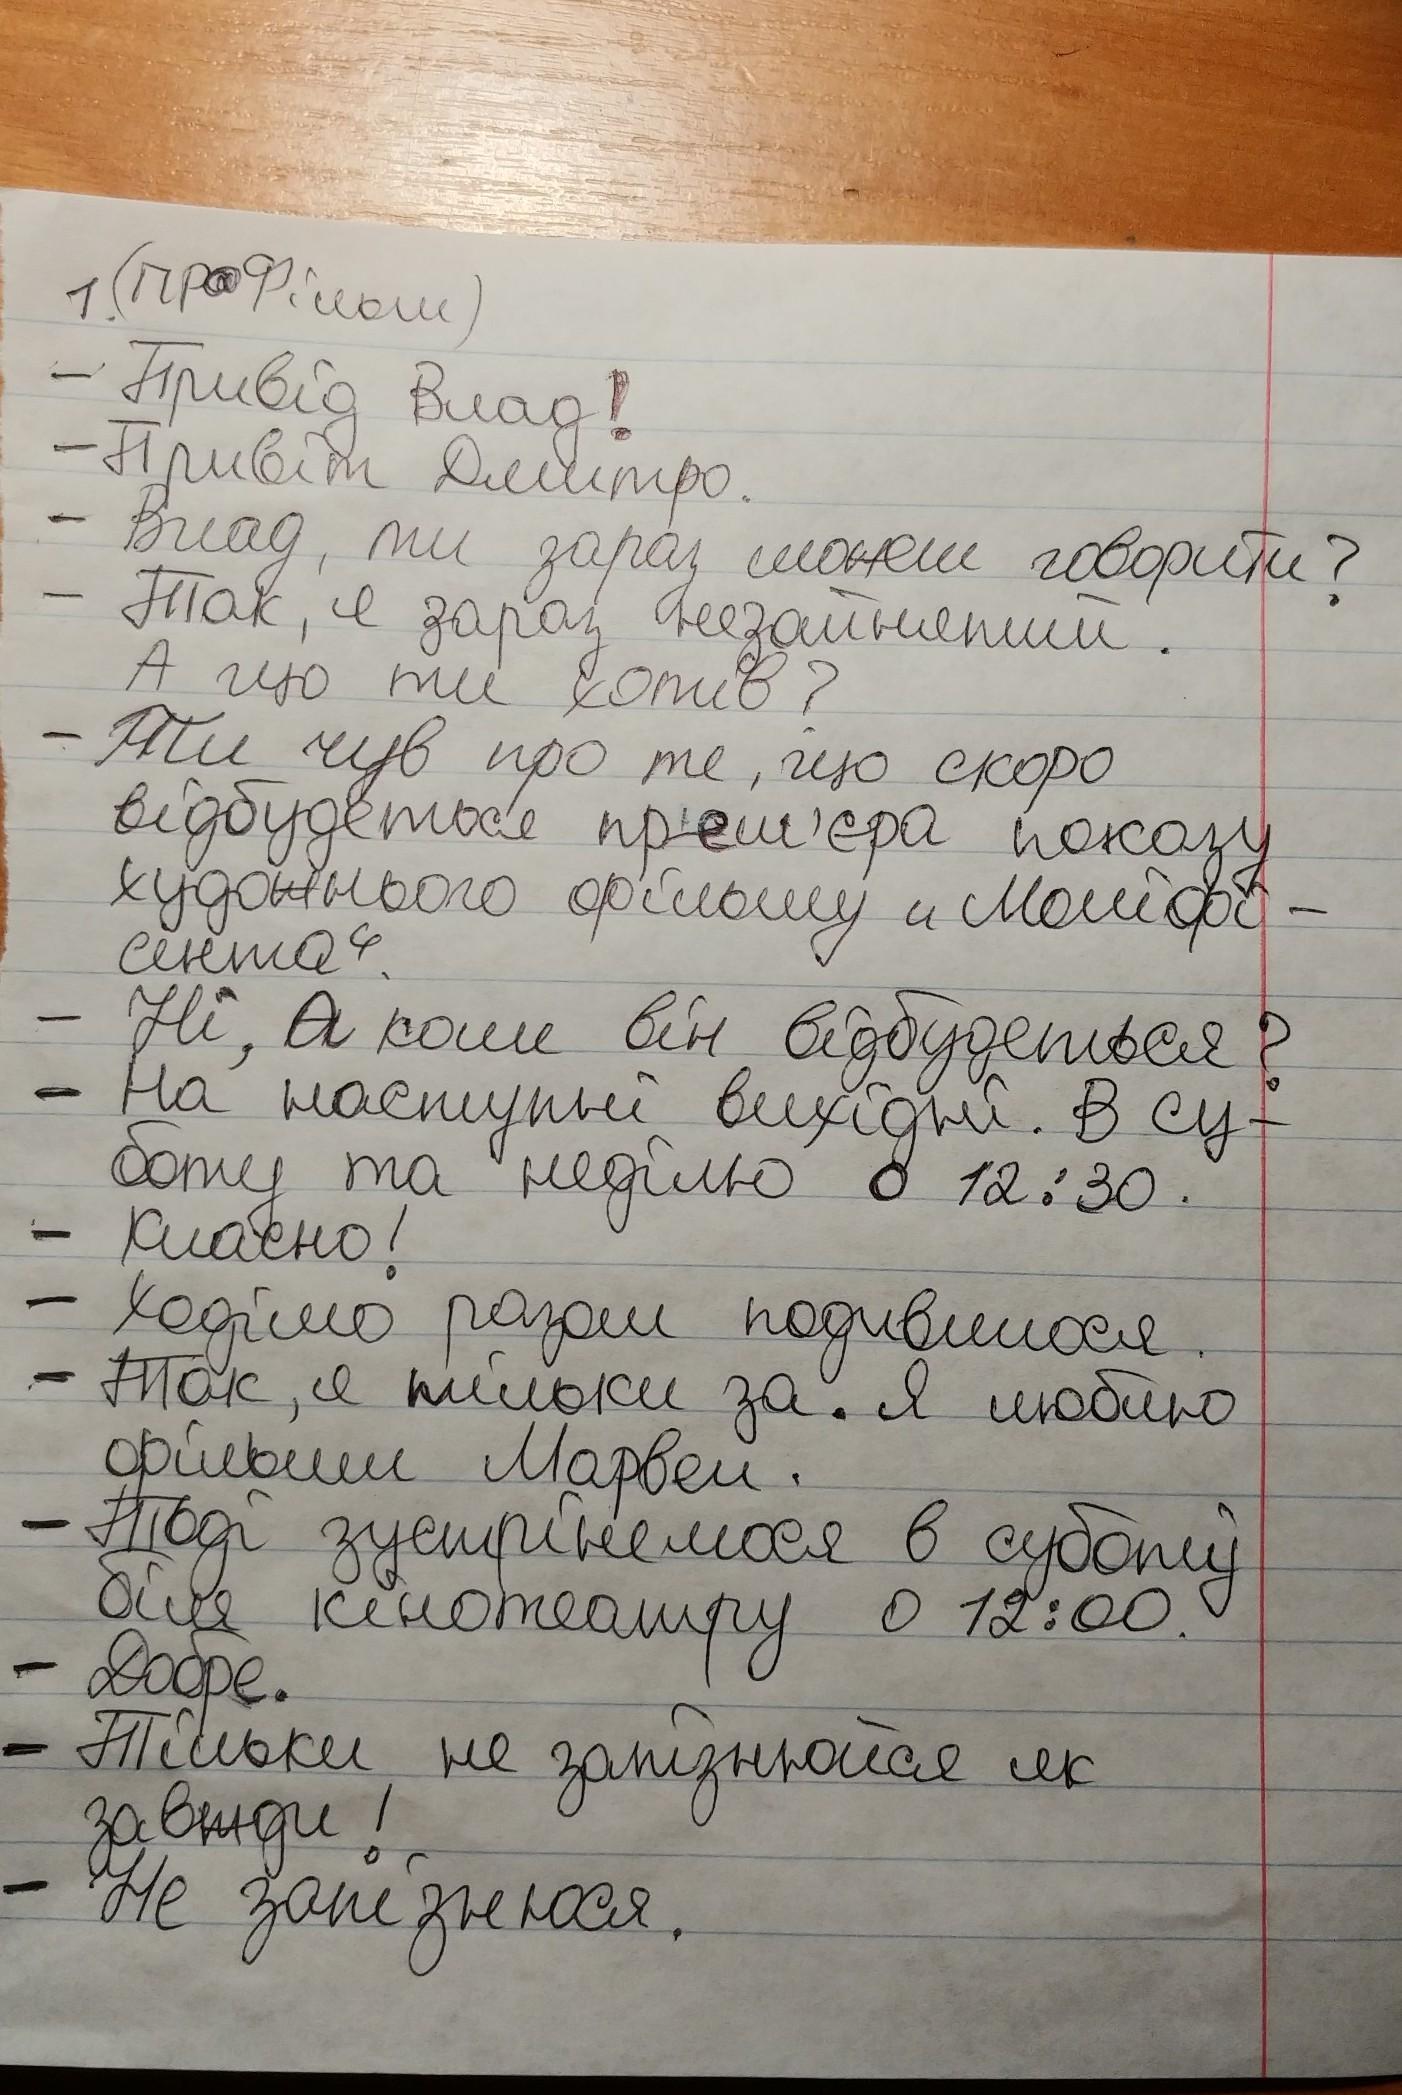 1. (Про Фільм)
- Привід Влад!
- Привіт Дмитро.
- Влад, ти зараз можеш говорити?
- Так, я зараз незайнятий.
А що ти хотів?
- Ти чув про те, що скоро
відбудеться прем'єра показу
художнього фільму "Маліфі-
сента".
- Ні, А коли він відбудеться?
- На наступні вихідні. В су-
боту та неділю о 12:30.
- Класно!
- Ходімо разом подивимося.
- Так, я тільки за. Я люблю
фільми Марвел.
- Тоді зустрінемося в суботу
біля кінотеатру о 12:00.
- Добре.
- Тільки не запізнюйся як
завжди!
- Не запізнюся.